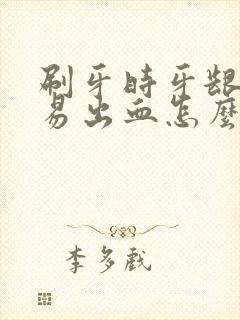 刷牙时牙龈
易出血怎麼
李多戲